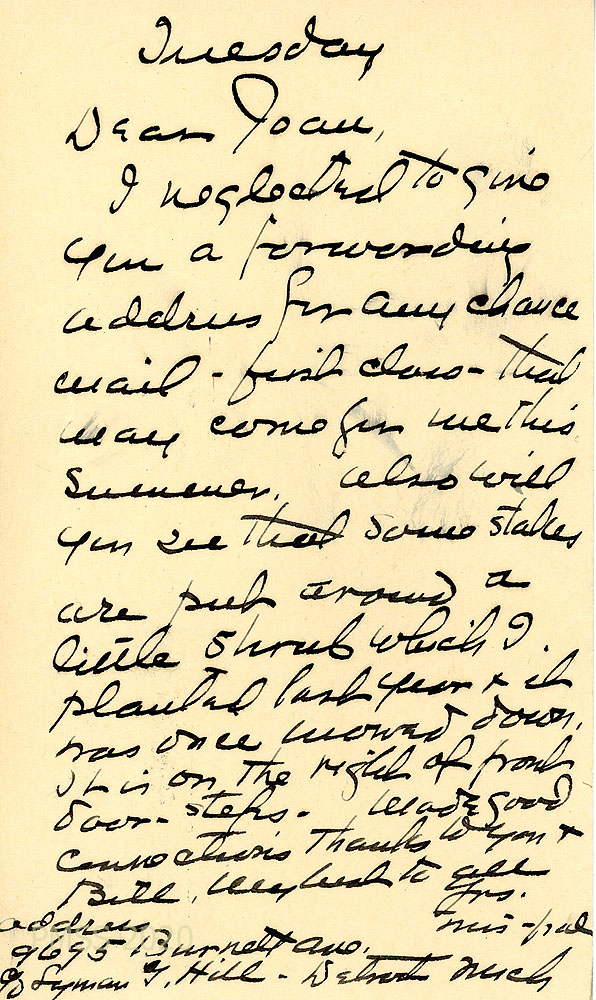 Tuesday
Dear Joan,
I neglected to give
you a forwarding
address for any chance
mail - first class - that
may come for me this
summer. Also will
you see that some stakes
are put around a
little shrub which I
planted last year + it
was once mowed down.
It is on the right of front
door-steps. Made good
connections thanks to you +
Bill. My best to all
yrs.
address
9695 Burnett ave.
c/o Lyman J. Hill - Detroit Mich